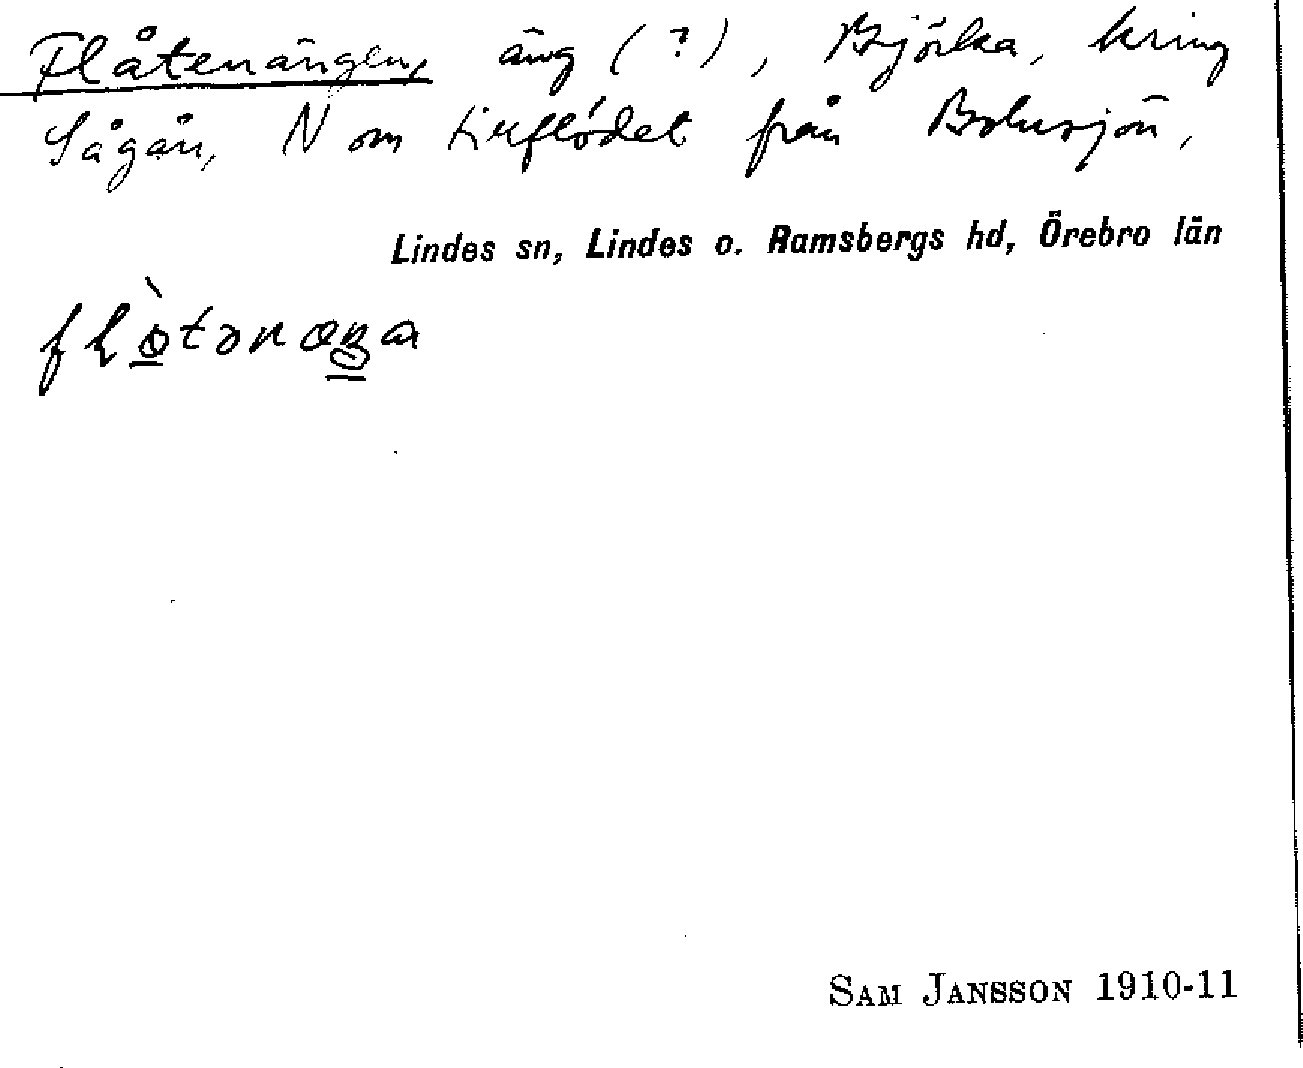 Flåtenängen, äng (?), Björka, kring
Sågån, N om tillflödet från Bolusjön,
Lindes sn, Lindes o. Ramsbergs hd, Örebro län
SAM JANSSON 1910-11